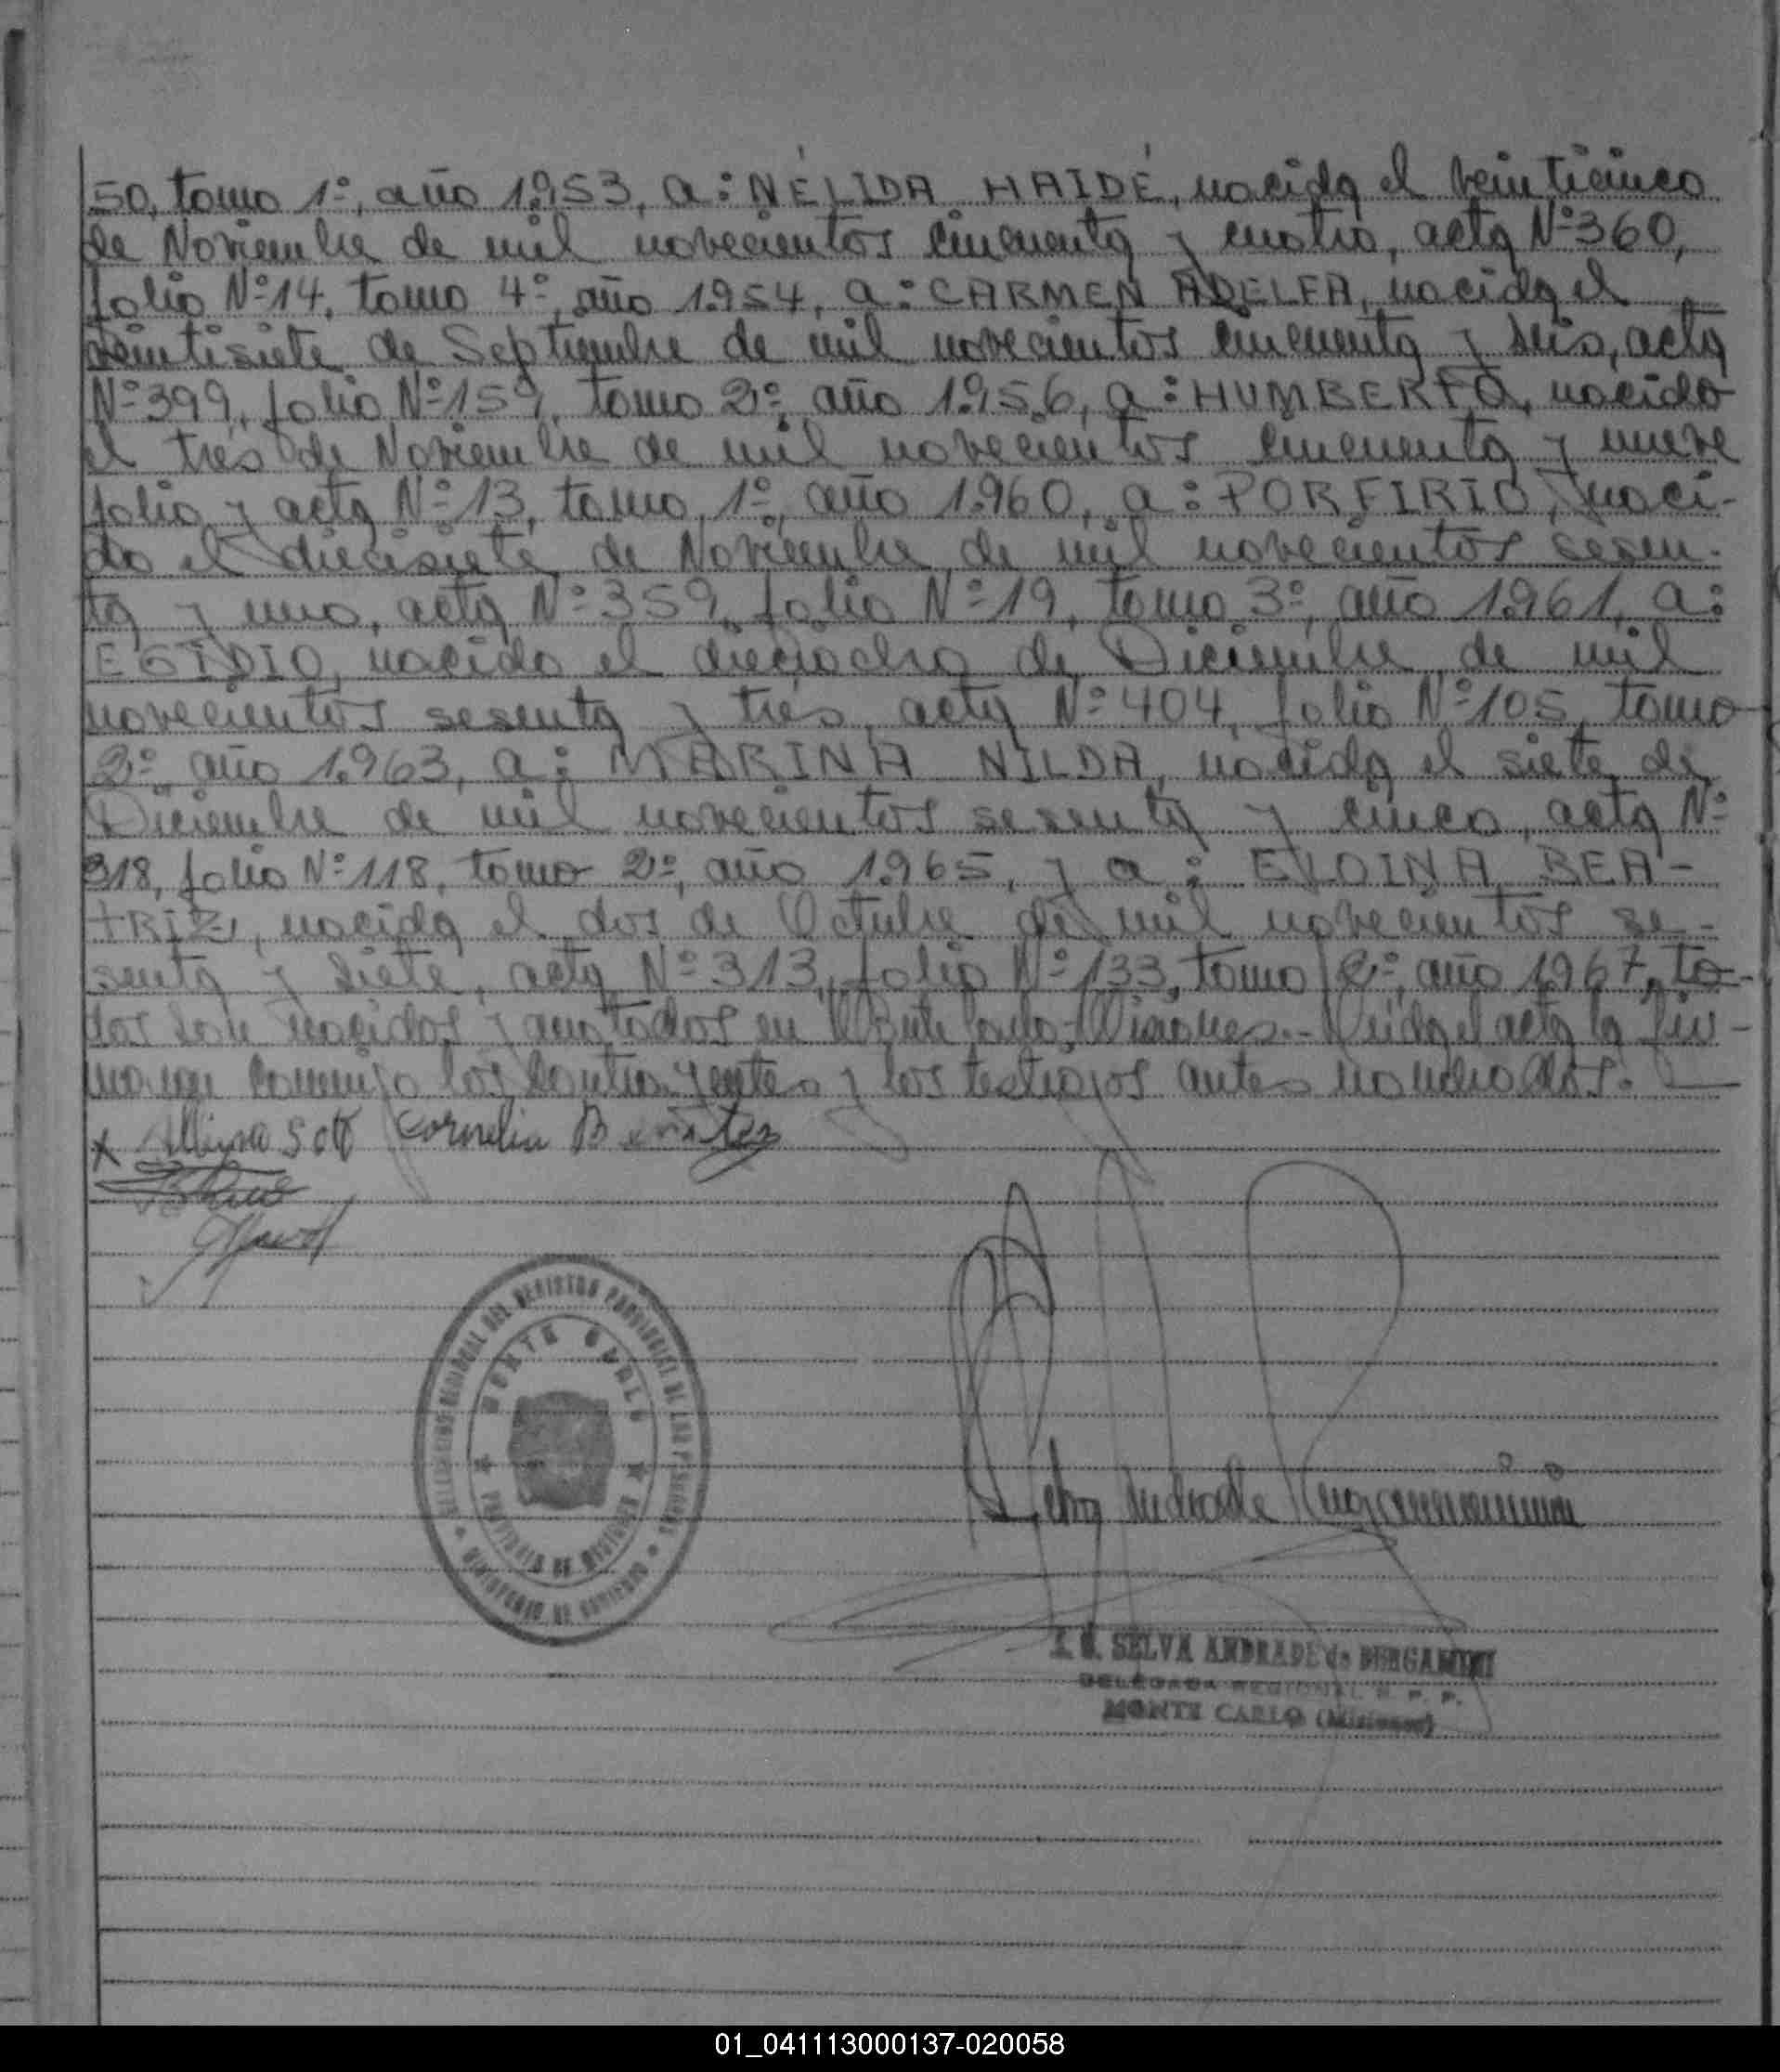 50, tomo 1º, año 1.953, a: NÉLIDA HAIDÉ, nacida el veinticinco
de Noviembre de mil novecientos cincuenta y cuatro, acta Nº 360,
folio Nº 14, tomo 4º, año 1.954, a: CARMEN ADELFA, nacida el
veintisiete de Septiembre de mil novecientos cincuenta y seis, acta
Nº 399, folio Nº 159, tomo 2º, año 1.956, a: HUMBERTO, nacido
el tres de Noviembre de mil novecientos cincuenta y nueve
folio y acta Nº 13, tomo 1º, año 1.960, a: PORFIRIO, naci-
do el diecisiete de Noviembre de mil novecientos sesen-
ta y uno, acta Nº 359, folio Nº 19, tomo 3º, año 1.961, a:
EGIDIO, nacido el dieciocho de Diciembre de mil
novecientos sesenta y tres, acta Nº 404, folio Nº 105, tomo
2º, año 1.963, a: MARINA NILDA, nacida el siete de
Diciembre de mil novecientos sesenta y cinco, acta Nº
318, folio Nº 118, tomo 2º, año 1.965, y a: ELOINA BEA-
TRIZ, nacida el dos de Octubre de mil novecientos se-
senta y siete, acta Nº 313, folio Nº 133, tomo 2º, año 1.967, to-
dos son nacidos y anotados en Monte Carlo, Misiones.- Leída el acta la fir-
man conmigo los contrayentes y los testigos antes nombrados.
x Albina Cornelio Benitez
DELEGACION REGIONAL DEL REGISTRO PROVINCIAL DE LAS PERSONAS
MONTE CARLO
PROVINCIA DE MISIONES
MINISTERIO DE GOBIERNO
Selva Andrade
SELVA ANDRADE de BERGAMINI
DELEGADA REGIONAL R. P. P.
MONTE CARLO (Misiones)
01_041113000137-020058